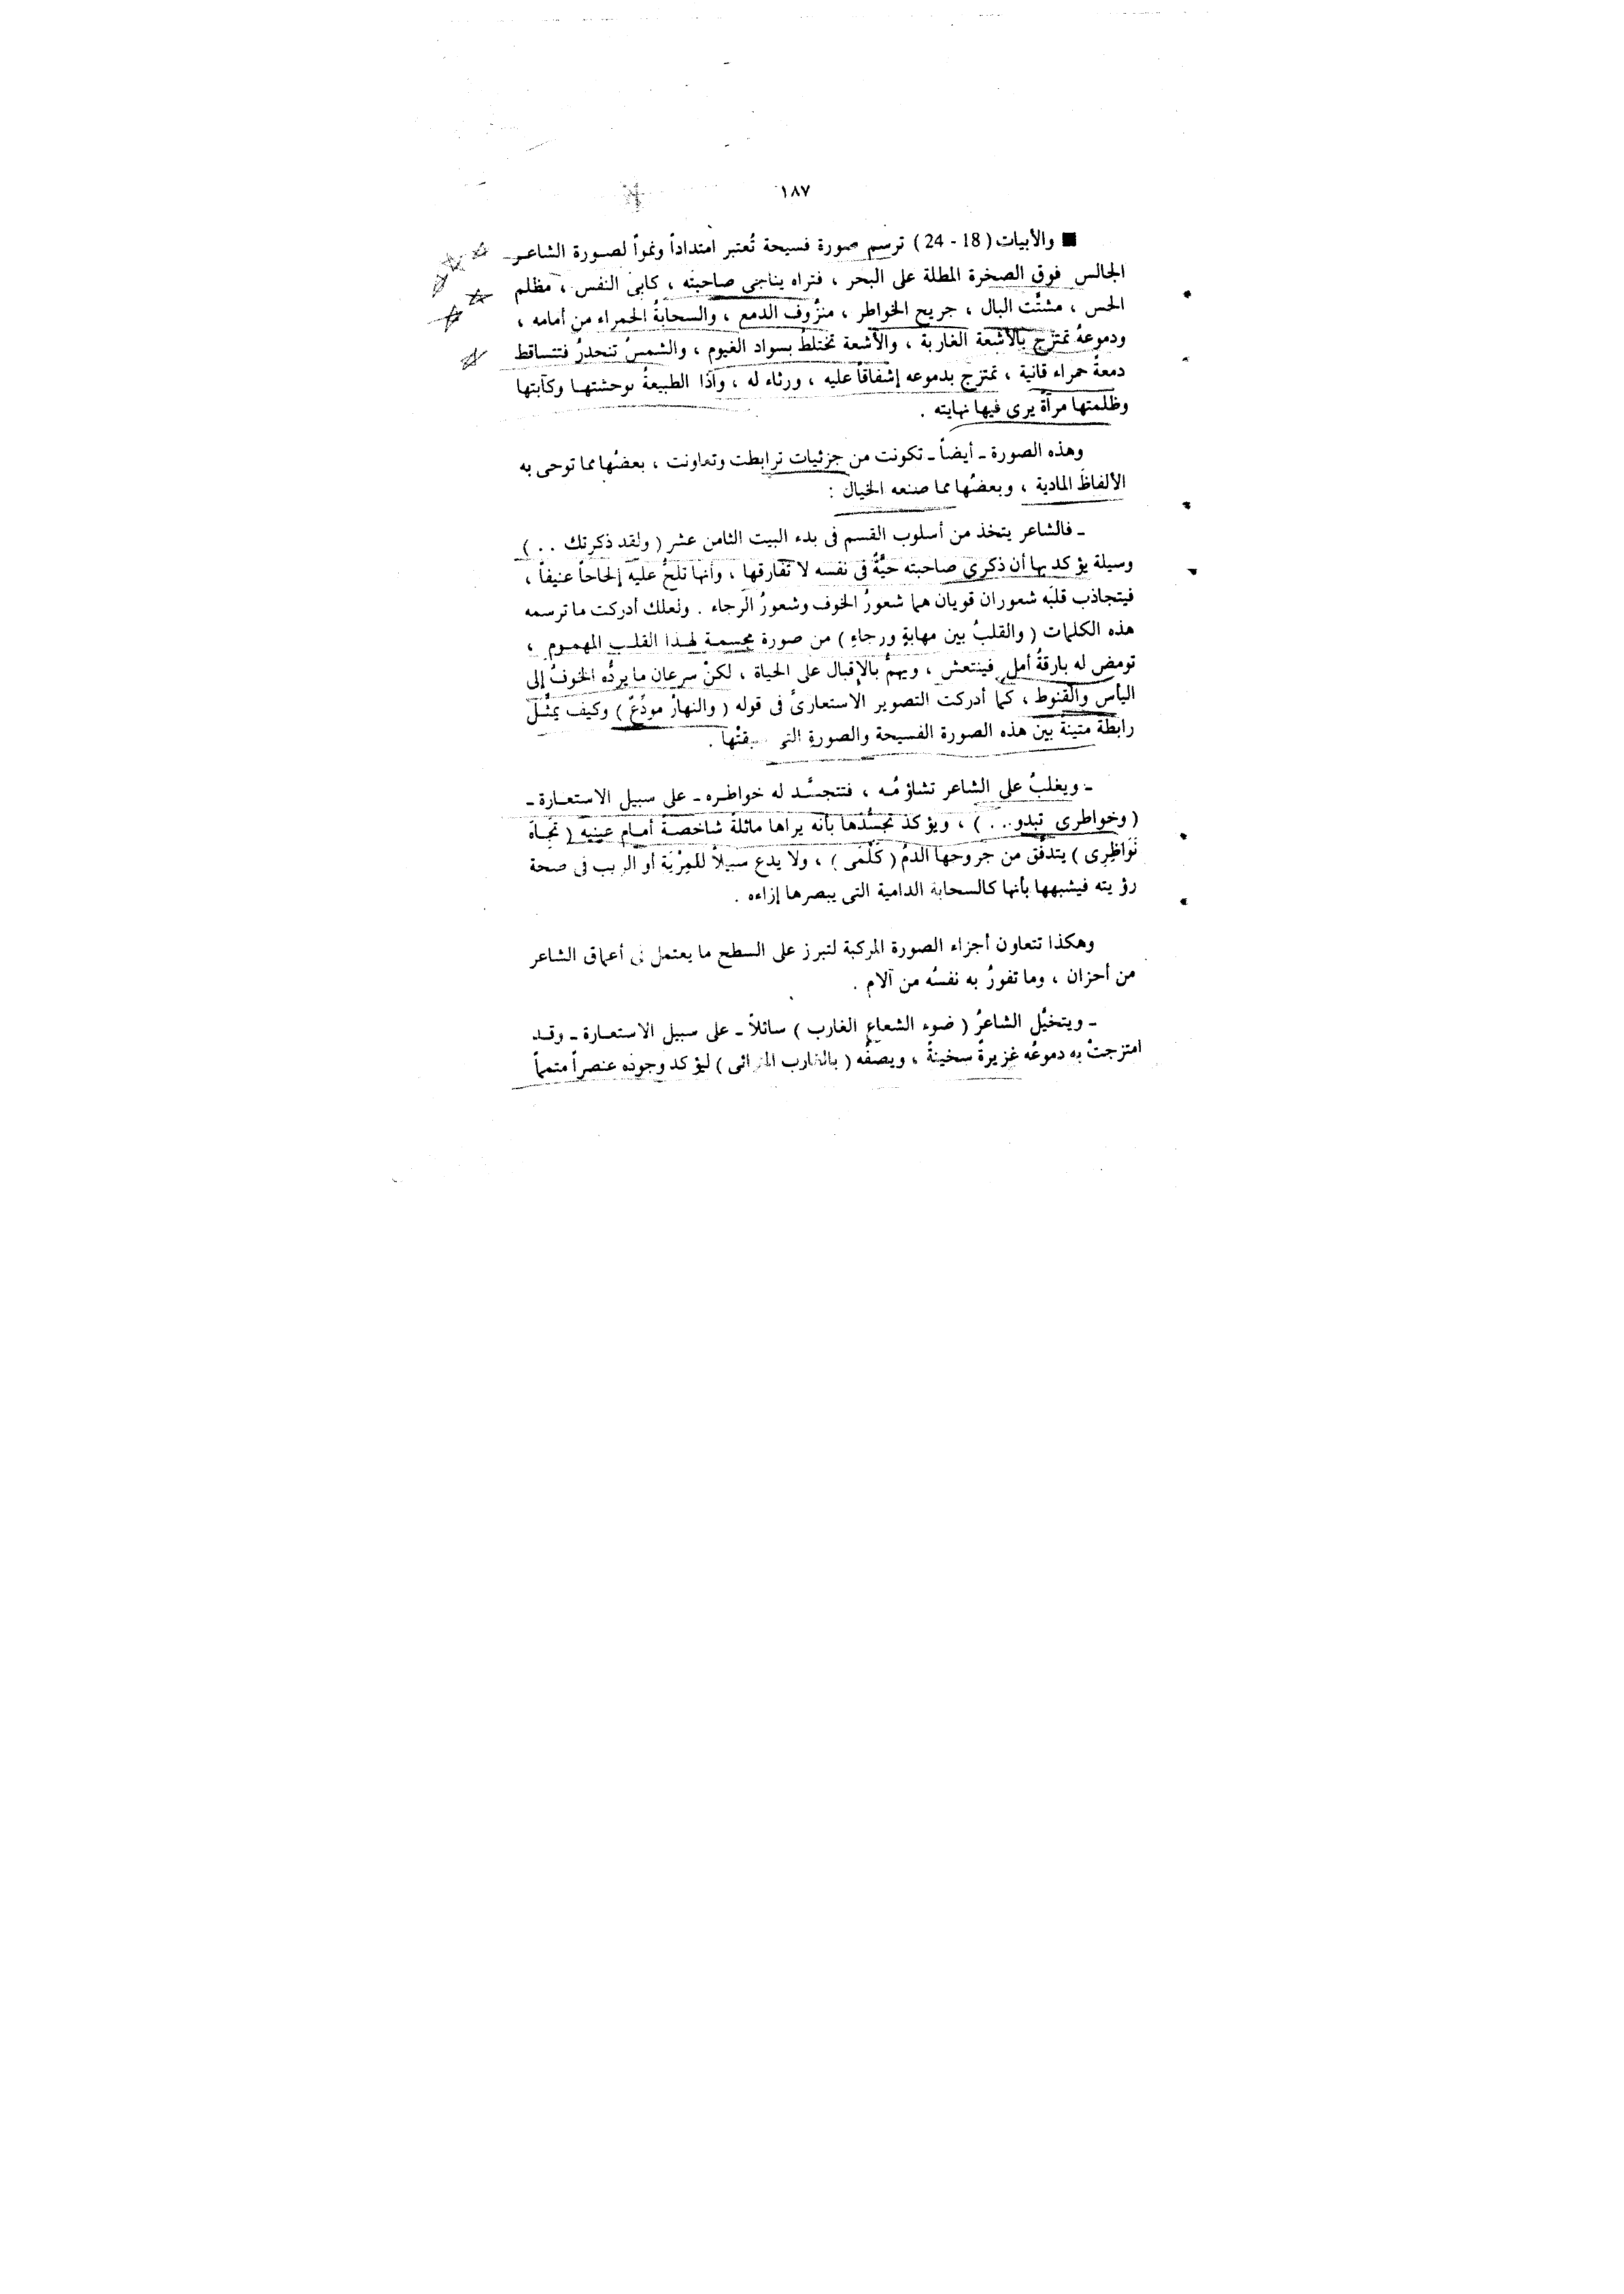 ١٨٧
■ والأبيات ( 18 - 24 ) ترسم صورة فسيحة تُعتبر امتداداً ونمواً لصورة الشاعر
الجالس فوق الصخرة المطلة على البحر ، فتراه يناجى صاحبته ، كابىَ النفس ، مظلم
الحس ، مشتَّت البال ، جريح الخواطر ، منزُوف الدمع ، والسحابةُ الحمراء من أمامه ،
ودموعهُ تمتزج بالأشعة الغاربة ، والأشعة تختلطُ بسواد الغيوم ، والشمسُ تنحدرُ فتتساقط
دمعةً حمراء قانية ، تمتزج بدموعه إشفاقاً عليه ، ورثاء له ، وآذا الطبيعةُ بوحشتها وكآبتها
وظلمتها مرآةٌ يرى فيها نهايته .
وهذه الصورة ـ أيضاً ـ تكونت من جزئيات ترابطت وتعاونت ، بعضُها مما توحى به
الألفاظ المادية ، وبعضُها مما صنعه الخيال :
ـ فالشاعر يتخذ من أسلوب القسم فى بدء البيت الثامن عشر ( ولقد ذكرتك . . )
وسيلة يؤكد بها أن ذكرى صاحبته حيَّةٌ فى نفسه لا تفارقها ، وأنها تلحُّ عليه إلحاحاً عنيفاً ،
فيتجاذب قلبَه شعوران قويان هما شعورُ الخوف وشعورُ الرجاء . ولعلك أدركت ما ترسمه
هذه الكلمات ( والقلبُ بين مهابةٍ ورجاءِ ) من صورة مجسمة لهذا القلب المهموم ،
تومض له بارقةُ أملٍ فينتعش ، ويهمُّ بالإقبال على الحياة ، لكنْ سرعان ما يردُّه الخوفُ إلى
اليأس والقنوط ، كما أدركت التصوير الاستعارىَّ فى قوله ( والنهارُ مودِّعٌ ) وكيف يمثِّل
رابطة متينةً بين هذه الصورة الفسيحة والصورةِ التى سبقتْها .
ـ ويغلبُ على الشاعر تشاؤمُه ، فتتجسَّد له خواطره ـ على سبيل الاستعارة ـ
( وخواطرى تبدو . . ) ، ويؤكد تجسُّدَها بأنه يراها ماثلةً شاخصةً أمام عينيه ( تجاهَ
نَوَاظِرِى ) يتدفَّق من جروحها الدمُ ( كَلْمَى ) ، ولا يدع سبيلاً للمِرْيَة أو الريب فى صحة
رؤيته فيشبهها بأنها كالسحابة الدامية التى يبصرها إزاءه .
وهكذا تتعاون أجزاء الصورة المركبة لتبرز على السطح ما يعتمل فى أعماق الشاعر
من أحزان ، وما تفورُ به نفسُه من آلامٍ .
ـ ويتخيَّل الشاعرُ ( ضوء الشعاع الغارب ) سائلاً ـ على سبيل الاستعارة ـ وقد
امتزجتْ به دموعُه غزيرةً سخينةً ، ويصفُه ( بالغارب المرائى ) ليؤكد وجودَه عنصراً متمماً